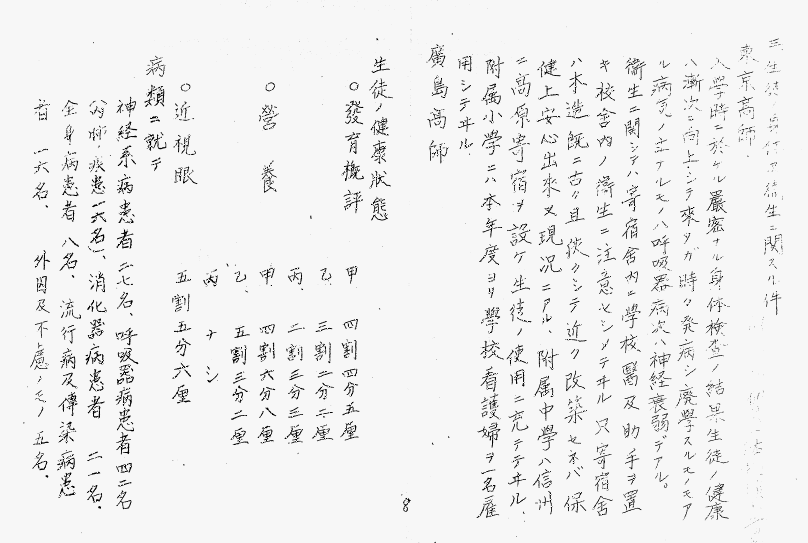 三 生徒ノ身体及衛生ニ関スル件
東京高師.
入學時ニ於ケル嚴密ナル身体檢查ノ結果生徒ノ健康
ハ漸次ニ向上シテ來タガ時々発病シ廃學スルモノモア
ル病気ノ主ナルモノハ呼吸器病次ハ神経衰弱デアル。
衛生ニ関シテハ寄宿舍內ニ學校醫及助手ヲ置
キ校舍內ノ衛生ニ注意セシメテヰル 只寄宿舍
ハ木造既ニ古ク且狹クシテ近ク改築セネバ保
健上安心出來ヌ現況ニアル、附属中學ハ信州
ニ高原寄宿ヲ設ケ生徒ノ使用ニ充テテヰル、
附属小學ニハ本年度ヨリ學校看護婦ヲ一名雇
用シテヰル
廣島高師
8
生徒ノ健康狀態
○發育概評
甲 四割四分五厘
乙 三割二分二厘
丙. 二割三分三厘
○營養
甲 四割六分八厘
乙. 五割三分二厘
丙 ナシ
○近視眼 五割五分六厘
病類ニ就テ
神経系病患者二七名、呼吸器病患者四二名
疾患一六名)、消化器病患者 二一名、
全身病患者 八名、流行病及傳染病患
者 一六名、 外因及不慮ノモノ 五名.